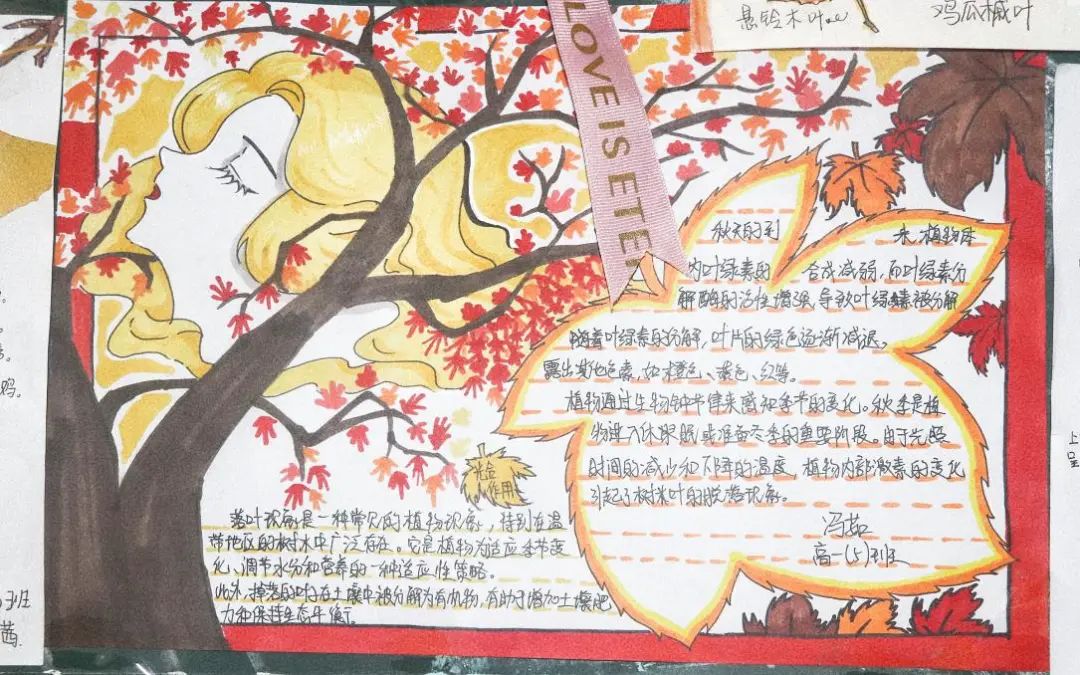 悬铃木叶
鸡瓜槭叶
LOVE IS ETE
秋天的到来,植物体
内叶绿素的合成减弱,而叶绿素分
解酶的活性增强,导致叶绿素被分解
随着叶绿素的分解,叶片的绿色逐渐减退。
露出其他色素,如橙色、黄色、红等。
植物通过生物钟节律来感知季节的变化。秋季是植
物进入休眠或准备冬季的重要阶段。由于光照
时间的减少和下降的温度,植物内部激素的变化
引起了树木叶的脱落现象。
冯茹
高一(5)班
光合
作用
落叶现象是一种常见的植物现象,特别在温
带地区的树木中广泛存在。它是植物为适应季节变
化、调节水分和营养的一种适应性策略。
此外,掉落的叶在土壤中被分解为有机物,有助于增加土壤肥
力和保持生态平衡。
鸡。
班
茜
上
呈